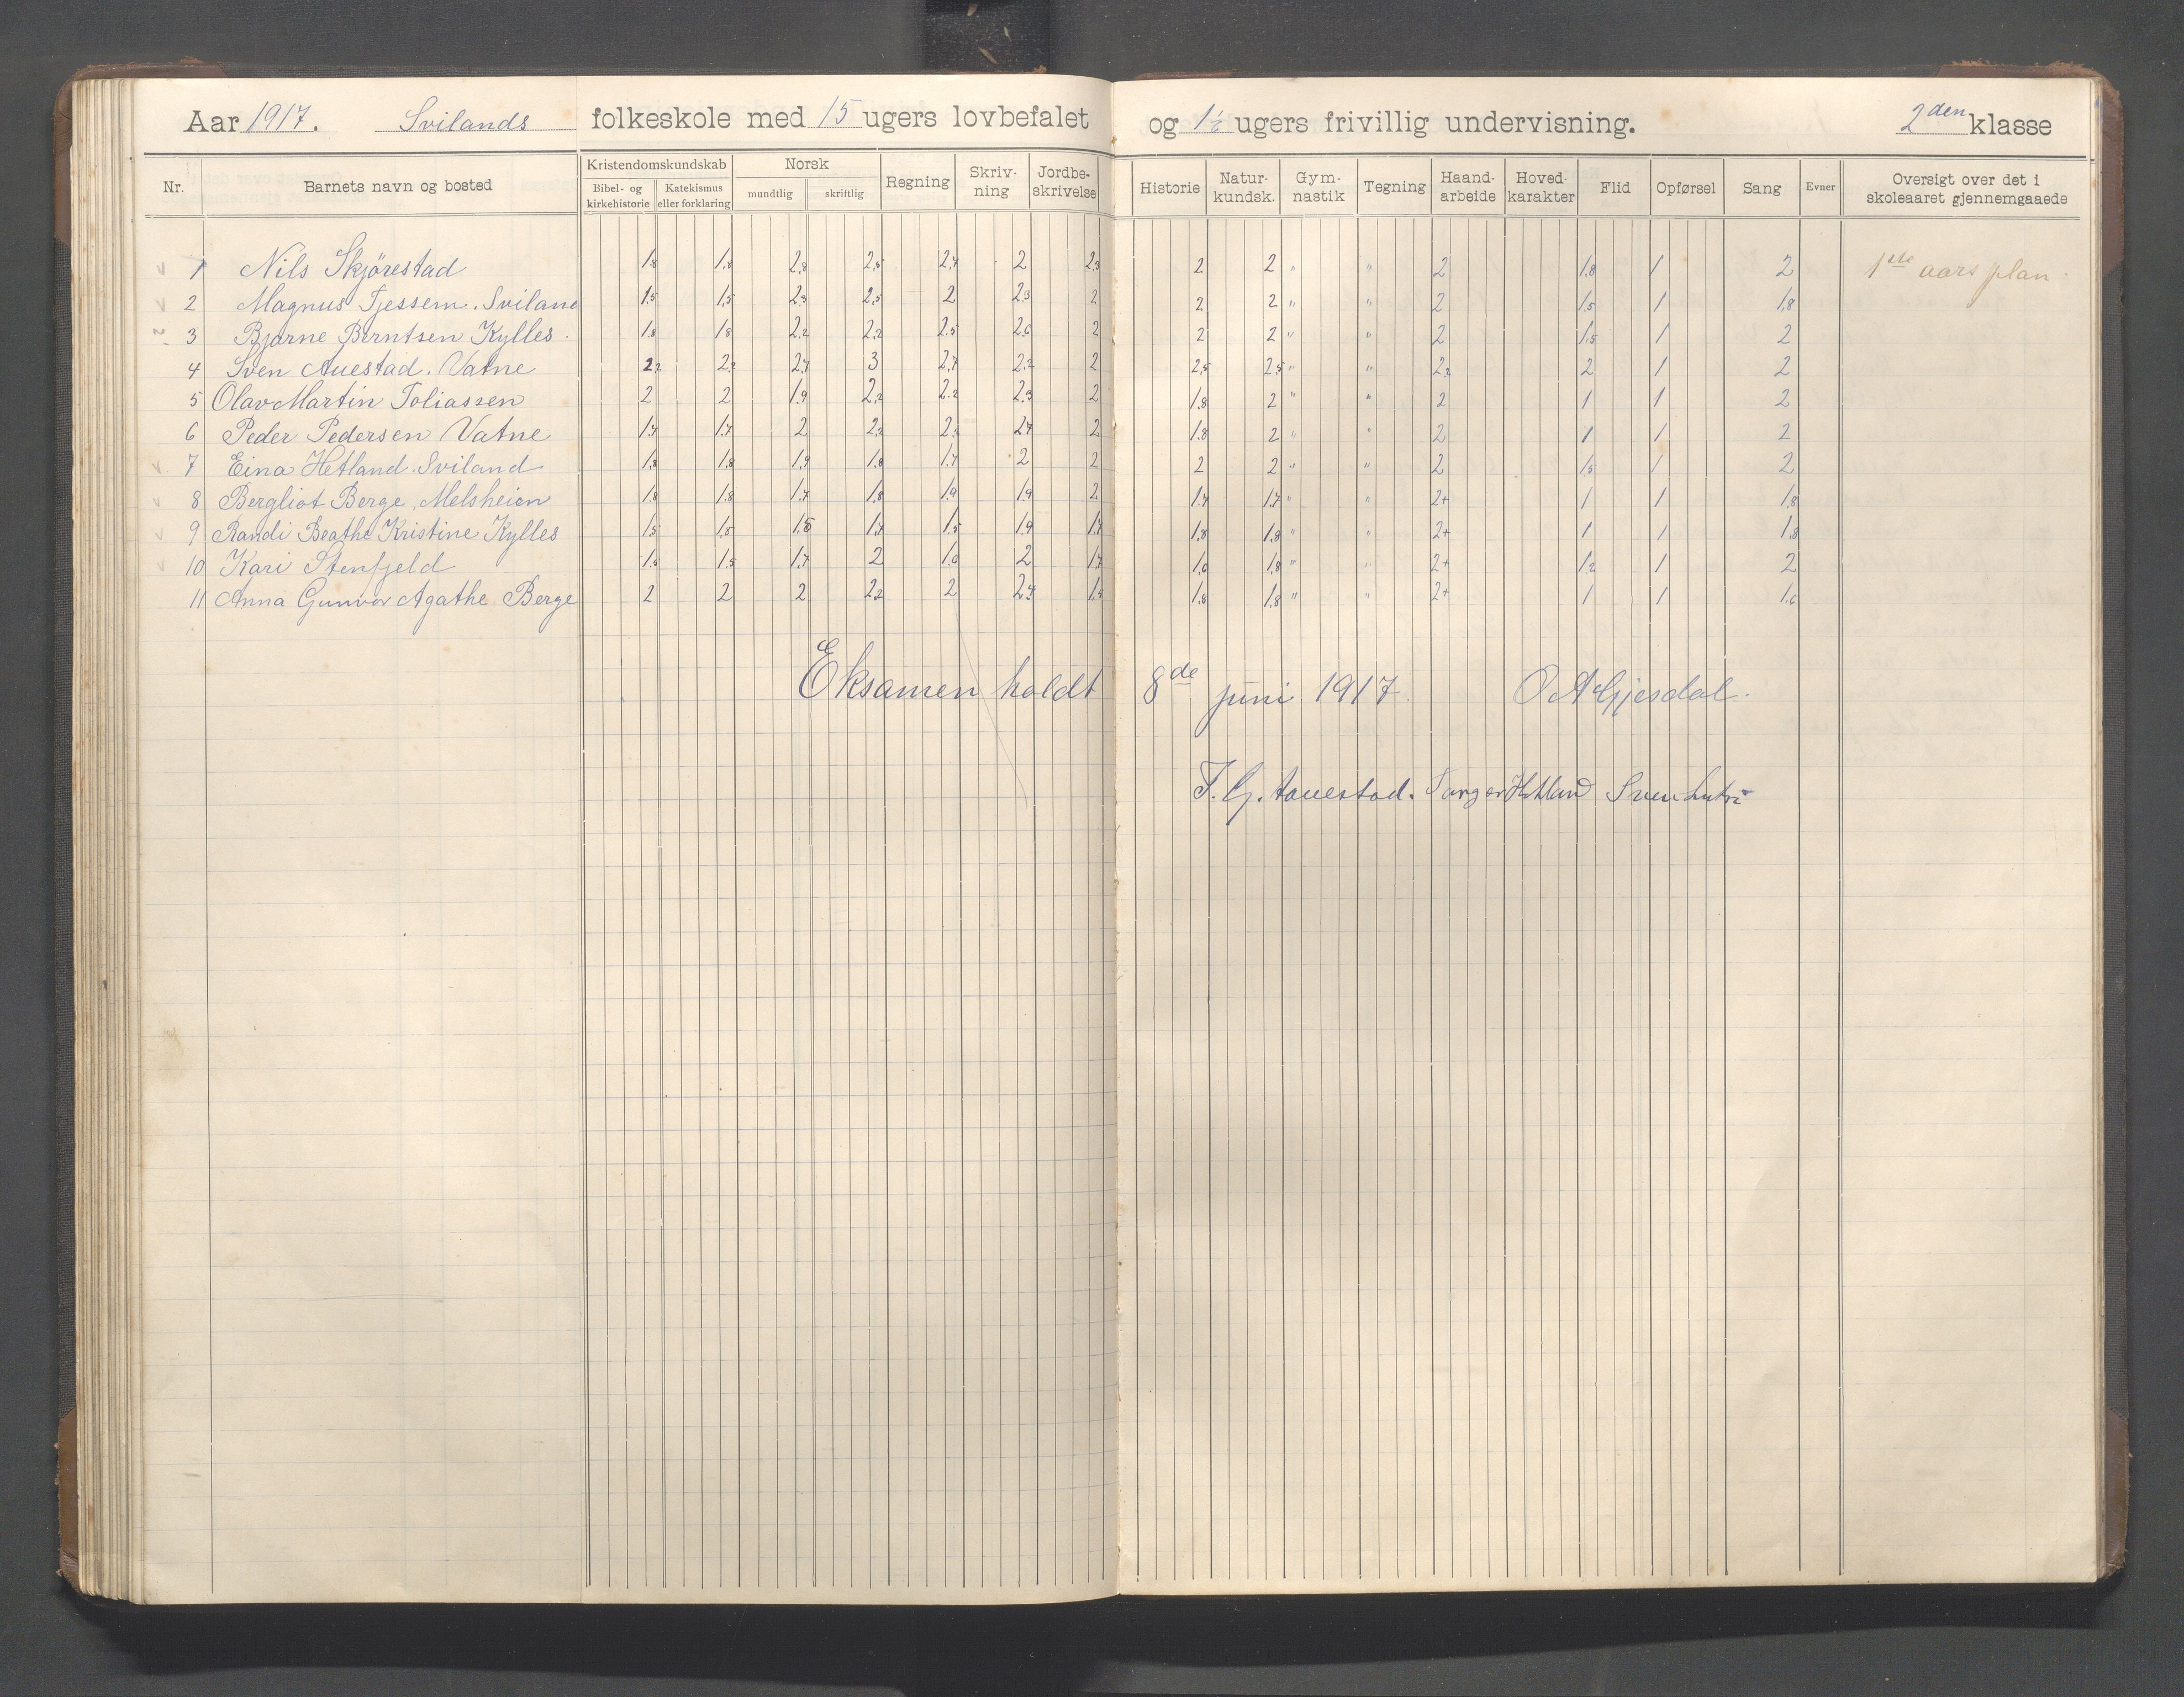 Aar 1917. Svilands folkeskole med 15 ugers lovbefalet og 1½ ugers frivillig undervisning. 2den klasse
Nr. Barnets navn og bosted Kristendomskundskab Bibel- og kirkehistorie Katekismus eller forklaring Norsk mundtlig skriftlig Regning Skriv-ning Jordbe-skrivelse Historie Natur-kundsk. Gym-nastik Tegning Haand-arbeide Hoved-karakter Flid Opførsel Sang Evner Oversigt over det i skoleaaret gjennemgaaede
1 Nils Skjørestad 1,8 1,8 2,8 2,5 2,4 2 2,3 2 2 " " 2 1,8 1 2 1ste aars plan
2 Magnus Tjessem. Sviland 1,5 1,5 2,3 2,5 2 2,3 2 2 2 " " 2 1,5 1 1,8
3 Bjarne Berntsen Kylles. 1,8 1,8 2,2 2,2 2,5 2,6 2 2 2 " " 2 1,5 1 2
4 Sven Auestad. Vatne 2,2 2,2 2,4 3 2,4 2,2 2 2,5 2,5 " " 2,2 2 1 2
5 Olav Martin Toliassen 2 2 1,9 2,2 2,2 2,3 2 1,8 2 " " 2 1 1 2
6 Peder Pedersen Vatne 1,4 1,4 2 2,2 2,3 2,4 2 1,8 2 " " 2 1 1 2
7 Eina Hetland. Sviland 1,8 1,8 1,9 1,8 1,4 2 2 2 2 " " 2 1,5 1 2
8 Bergliot Berge, Melsheien 1,8 1,8 1,4 1,8 1,9 1,9 2 1,4 1,4 " " 2+ 1 1 1,8
9 Randi Beathe Kristine Kylles 1,5 1,5 1,5 1,4 1,5 1,9 1,4 1,8 1,8 " " 2+ 1 1 1,8
10 Kari Stenfjeld 1,5 1,5 1,4 2 1,6 2 1,4 1,6 1,8 " " 2+ 1,2 1 2
11 Anna Gunvor Agathe Berge 2 2 2 2,2 2 2,4 1,5 1,8 1,8 " " 2+ 1 1 1,6
Eksamen holdt 8de juni 1917. O A Gjesdal.
T. G. Auestad. Hetland Sven